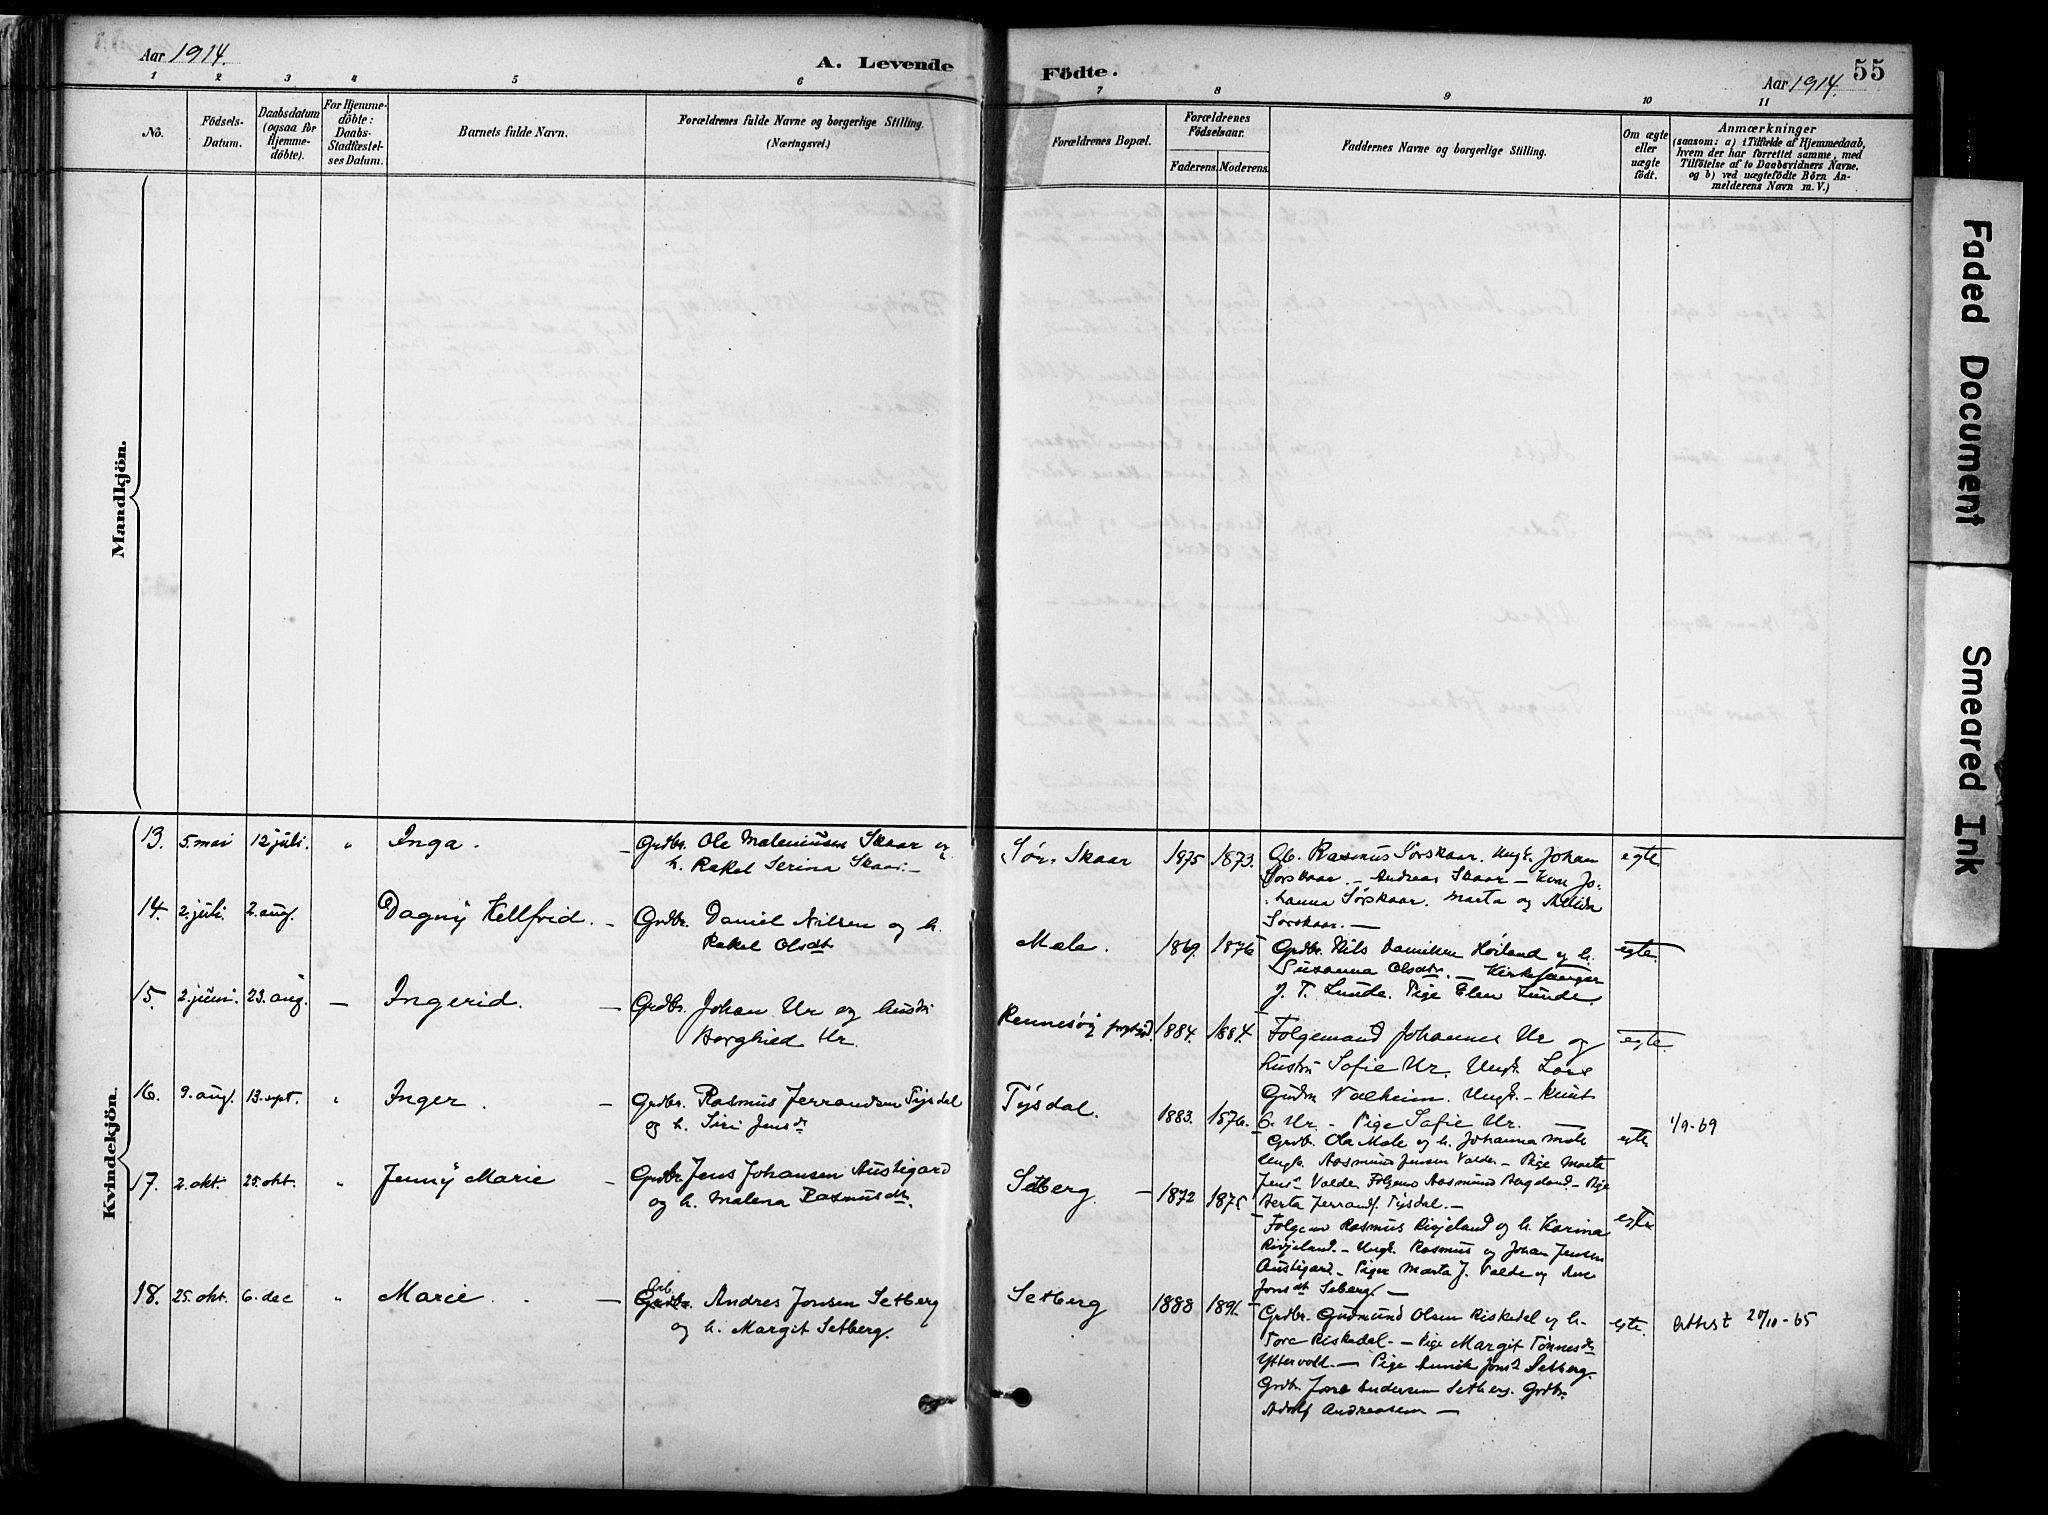 Aar 1914.
A. Levende Födte.
Aar 1914.
55
1 2 3 4 5 6 7 8 9 10 11
No.
Födsels-
Datum.
Daabsdatum
(ogsaa for
Hjemme-
döbte).
For Hjemme-
döbte:
Daabs-
Stadfæstel-
ses Datum.
Barnets fulde Navn.
Forældrenes fulde Navne og borgerlige Stilling.
(Næringsvei.)
Forældrenes Bopæl.
Forældrenes
Födselsaar.
Faderens. Moderens.
Faddernes Navne og borgerlige Stilling.
Om ægte
eller
uægte
födt.
Anmærkninger
(saasom: a) i Tilfælde af Hjemmedaab,
hvem der har forrettet samme, med
Tilföielse af to Daabsvidners Navne.
og b) ved uægtefödte Börn An-
melderens Navn m. V.)
Mandkjön.
Kvindekjön.
13. 5. mai 12 juli. " Inga. — Grdbr. Ole Maleniusen Skaar og
h. Rakel Serina Skaar. —
Sør. Skaar 1875 1873.
Gb. Rasmus Sørskaar. Ungk. Johan
Sørskaar. — Andreas Skaar — Kone Jo-
hanna Sørskaar. Marta og
Sørskaar. —
egte
14. 2. juli. 2. aug. Dagny Hellfrid. — Grdbr. Daniel Nilsen og h.
Rakel Olsdt
Mele. 1869. 1876
Grdbr. Nils Danielsen Høiland og h.
Susanna Olsdtr. — Kirkesanger
J. T. Lunde. Pige Elen Lunde.
egte.
15. 2. juni. 23. aug. — Ingerid. — Grdbr. Johan Ur og hustru
Borghild Ur.
Rennesøy 1884. 1884.
Folgemand Johannes Ur og
hustru Sofie Ur. Ungk. Lars
Gudm Valheim. Ungk. — Knut
G. Ur. — Pige Sofie Ur. —
egte.
16. 9. aug. 13. sept. " Inger. — Grdbr. Rasmus Jerrandsen Tysdal
og h. Siri Jensdt
Tysdal. 1883. 1876.
Grdbr. Ola Mele og h. Johanna Mele
Ungk. Aasmund Jensen Valde — Pige Marta
Jens. Valde Folgem Aasmund Bergeland — Pige
Berta Jerrandsd. Tysdal. —
egte
1/9-69
17. 2. okt. 25. okt. " Jenny Marie — Grdbr. Jens Johansen Austigard
og h. Malena Rasmusdt.
Setberg — 1872 1875
Folgem Rasmus Riveland og h. Karina
Riveland. — Ungk. Rasmus og Johan Jensen
Austigard. — Piger Marta J. Valde og Ane
Jonsdt Seberg. —
egte
18. 25. okt. 6. dec " Marie. — Grdbr. Andres Jonsen Setberg
og h. Margit Setberg.
Setberg 1888 1891.
Grdbr. Gudmund Olsen Riskedal og h.
Tora Riskedal. — Pige Margit Tønnesdt
Yttervoll. — Pige Jonsd Setberg.
Grdbr. Jone Andersen Setberg. Grdbr.
Adolf Andreassen —
egte.
Attest 27/10-65
Faded Document
Smeared Ink